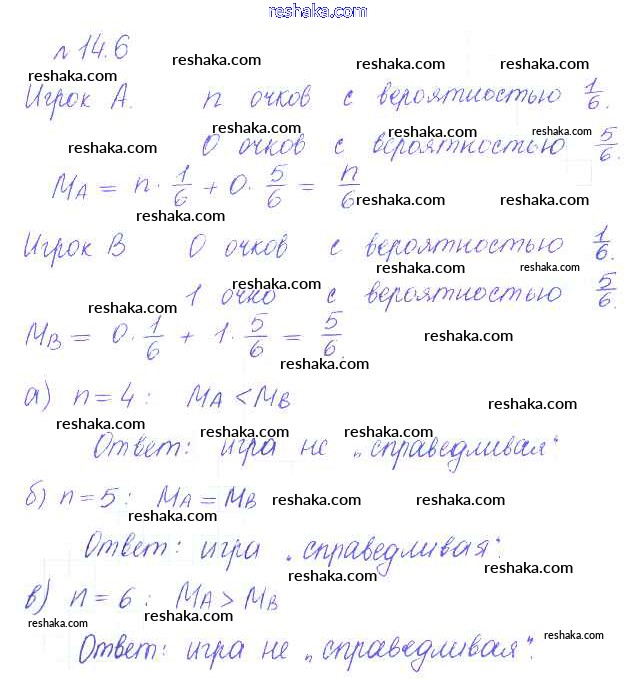 reshaka.com
№ 14.6
reshaka.com reshaka.com
reshaka.com reshaka.com reshaka.com
Игрок А. n очков с вероятностью 1/6.
reshaka.com reshaka.com reshaka.com
0 очков с вероятностью 5/6.
M_A = n · 1/6 + 0 · 5/6 = n/6
reshaka.com reshaka.com
reshaka.com
Игрок В 0 очков с вероятностью 1/6.
reshaka.com reshaka.com
reshaka.com
1 очко с вероятностью 5/6.
reshaka.com
M_B = 0 · 1/6 + 1 · 5/6 = 5/6.
reshaka.com
reshaka.com
а) n = 4 : M_A < M_B
reshaka.com
reshaka.com reshaka.com reshaka.com
Ответ: игра не „справедливая“
б) n = 5 : M_A = M_B
reshaka.com reshaka.com
reshaka.com
Ответ: игра „справедливая“.
reshaka.com
в) n = 6 : M_A > M_B
reshaka.com reshaka.com reshaka.com
reshaka.com
Ответ: игра не „справедливая“.